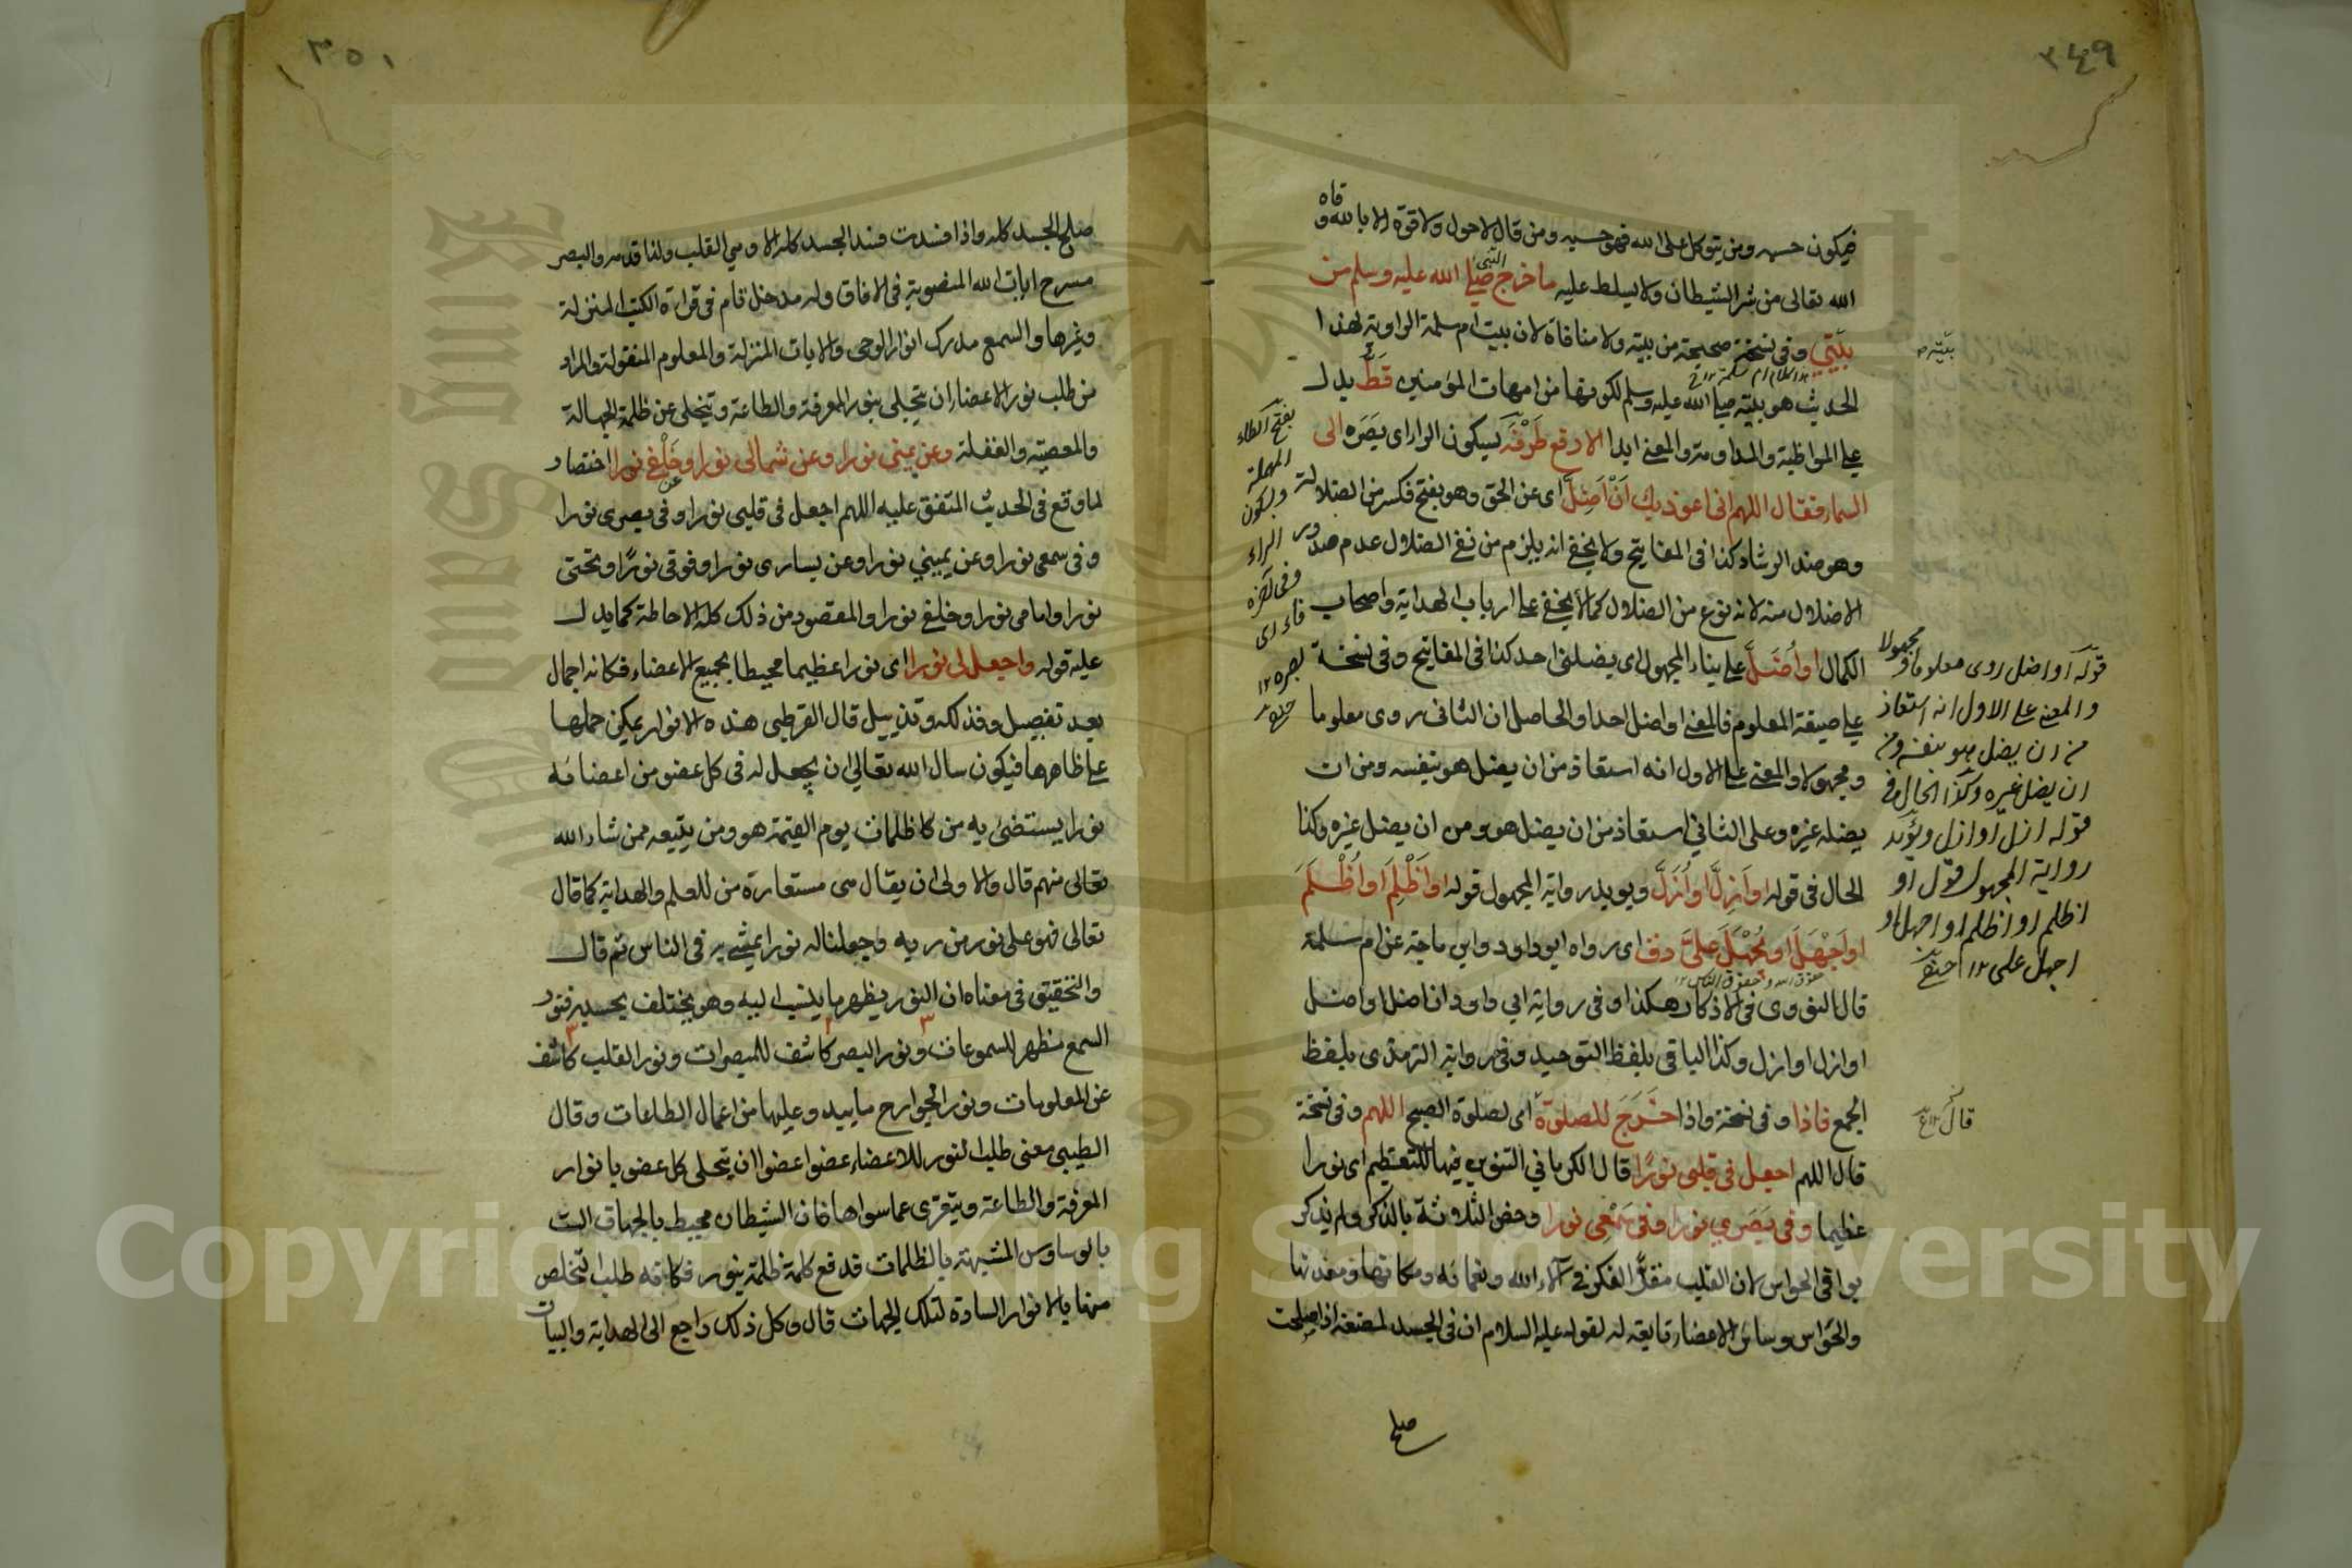 ٣٤٩
فيكون حسبه ومن يتوكل على الله فهو حسبه ومن قال لاحول ولا قوة الا بالله وقاه
الله تعالى من شر الشيطان ولا يسلط عليه ما خرج النبي صلى الله عليه وسلم من
بيتي وفي نسخة صحيحة من بيته ولا منافاة لان بيت ام سلمة الراوية لهذا
الحديث هو بيته صلى الله عليه وسلم لكونها من امهات المؤمنين قط يدل
على المواظبة والمداومة والمعنى ابدا الا رفع طرفه بسكون الراء اى بصره الى
السماء فقال اللهم انى اعوذ بك ان اضل اى عن الحق وهو بفتح فكسر من الضلالة
وهو ضد الرشاد كذا فى المفاتيح ولا يخفى انه يلزم من نفى الضلال عدم صدور
الاضلال منه لانه نوع من الضلال كما لا يخفى على ارباب الهداية واصحاب
الكمال او أضل على بناء المجهول اى يضلنى احد كذا فى المفاتيح وفى نسخة
على صيغة المعلوم فالمعنى او اضل احدا والحاصل ان الثانى روى معلوما
ومجهولا والمعنى على الاول انه استعاذ من ان يضل هو بنفسه ومن ان
يضله غيره وعلى الثاني استعاذ من ان يضل هو ومن ان يضل غيره وكذا
الحال فى قوله او أزل او أزل ويويد رواية المجهول قوله او أظلم او أظلم
او أجهل او يجهل علي دق اى رواه ابو داود وابن ماجة عن ام سلمة
قال النووى فى الاذكار هكذا وفى رواية ابي داود ان اضل او اضل
او ازل او ازل وكذا الباقى بلفظ التوحيد وفى رواية الترمذى بلفظ
الجمع فاذا وفى نسخة واذا خرج للصلوة اى لصلوة الصبح اللهم وفى نسخة
قال اللهم اجعل فى قلبى نورا قال الكرماني التنوين فيها للتعظيم اى نورا
عظيما وفى بصري نورا وفى سمعى نورا وخص الثلاثة بالذكر ولم يذكر
بواقى الحواس لان القلب مقر الفكر فى آلاء الله ونعمائه ومكانها ومعدنها
والحواس وسائر الاعضاء تابعة له لقوله عليه السلام ان فى الجسد لمضغة اذا صلحت
صلح
النبى
بيته
بفتح الطاء
المهملة
وسكون
الراء
وفى اخره
فاء اى
بصره ١٢
قوله او اضل روى معلوما ومجهولا
والمعنى على الاول انه استعاذ
من ان يضل هو بنفسه ومن
ان يضل غيره وكذا الحال فى
قوله ازل او ازل ويؤيد
رواية المجهول قوله او
اظلم او اظلم او اجهل او
اجهل على ١٢
حقوق الله وحقوق الناس ١٢
قال
٣٥١
صلح الجسد كله واذا فسدت فسد الجسد كله الا وهي القلب ولذا قدمه والبصر
مسرح ايات الله المنصوبة فى الافاق وله مدخل تام فى قراءة الكتب المنزلة
وغيرها والسمع مدرك انوار الوحى والايات المنزلة والمعلوم المنقولة والمراد
من طلب نور الاعضاء ان يتجلى بنور المعرفة والطاعة ويتخلى عن ظلمة الجهالة
والمعصية والغفلة وعن يمينى نورا وعن شمالى نورا وخلفى نورا اختصار
لما وقع فى الحديث المتفق عليه اللهم اجعل فى قلبى نورا وفى بصرى نورا
وفى سمعى نورا وعن يميني نورا وعن يسارى نورا وفوقى نورا وتحتى
نورا وامامى نورا وخلفى نورا والمقصود من ذلك كله الاحاطة كما يدل
عليه قوله واجعل لى نورا اى نورا عظيما محيطا بجميع الاعضاء فكانه اجمال
بعد تفصيل وفذلكة وتذييل قال القرطبى هذه الانوار يمكن حملها
على ظاهرها فيكون سال الله تعالى ان يجعل له فى كل عضو من اعضائه
نورا يستضئ به من ظلمات يوم القيمة هو ومن يتبعه ممن شاء الله
تعالى منهم قال والاولى ان يقال هى مستعارة من للعلم والهداية كما قال
تعالى فهو على نور من ربه وجعلنا له نورا يمشى به فى الناس ثم قال
والتحقيق فى معناه ان النور يظهر ما ينسب اليه وهو يختلف بحسبه فنور
السمع مظهر للمسموعات ونور البصر كاشف للمبصرات ونور القلب كاشف
عن المعلومات ونور الجوارح ما يبد وعليها من اعمال الطاعات وقال
الطيبى معنى طلب النور للاعضاء عضوا عضوا ان يتحلى كل عضو بانوار
المعرفة والطاعة ويتعرى عما سواها فان الشيطان محيط بالجهات الست
بالوساوس المشبهة بالظلمات فدفع كلمة ظلمة بنور فكانه طلب التخلص
منها بالانوار السادة لتلك الجهات قال وكل ذلك راجع الى الهداية والبيان
Copyright © King Saud University
King Saud University
1957